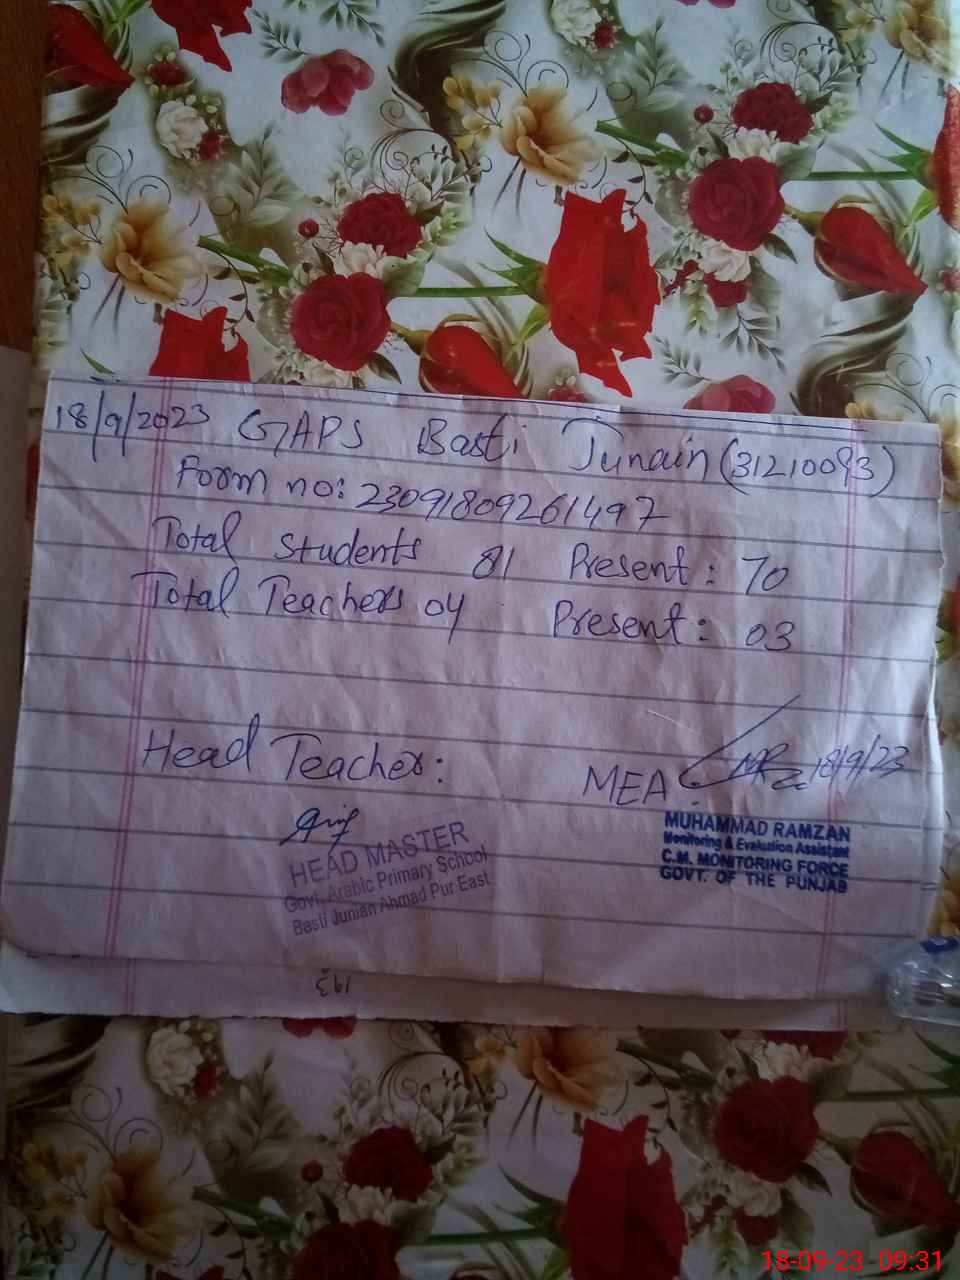 18/9/2023 GAPS Basti Junain (31210093)
Form no: 23091809261497
Total Students 81 Present: 70
Total Teachers 04 Present: 03
Head Teacher:
MEA 18/9/23
HEAD MASTER
Govt. Arabic Primary School
Basti Junian Ahmad Pur East
MUHAMMAD RAMZAN
Monitoring & Evaluation Assistant
C.M. MONITORING FORCE
GOVT. OF THE PUNJAB
193
18-09-23 09:31